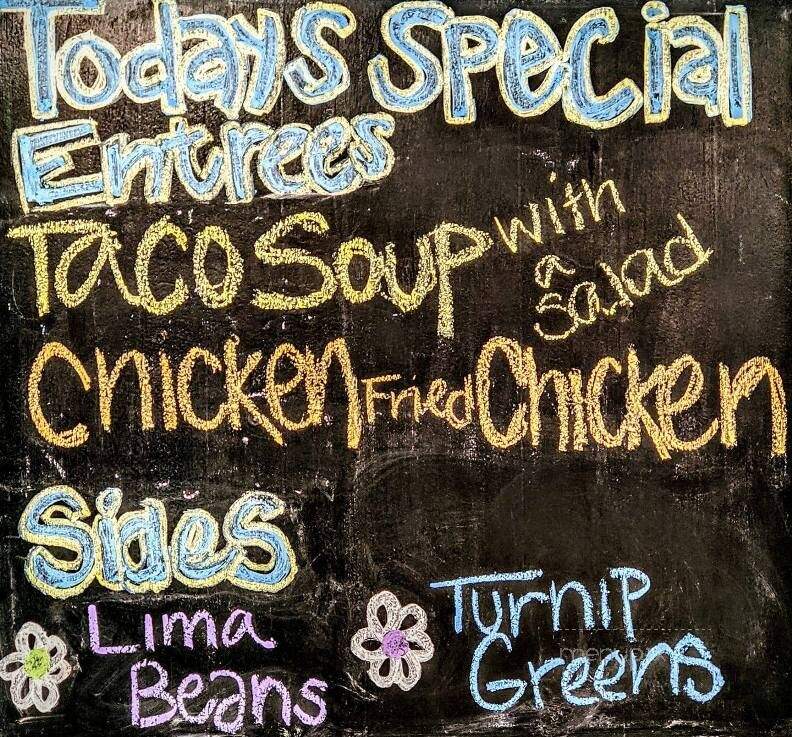 Todays Special
Entrees
Taco Soup with a Salad
Chicken Fried Chicken
Sides
Lima Beans
Turnip Greens